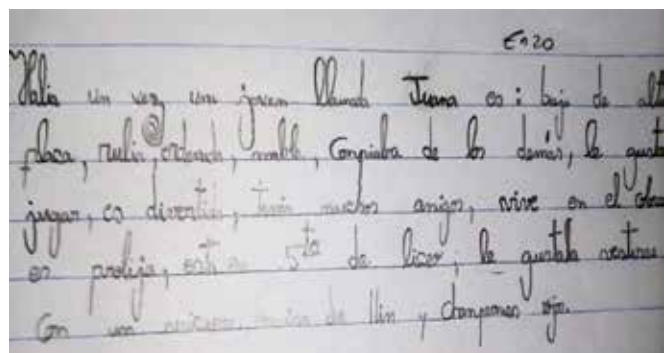 E120
Halia un vez, una joven llamada Juana es : baja de alt
flaca, rulin, ordenada, amable, Conpiaba de los demás, le gusta
jugar, es divertida, tenia muchos amigos, vive en el
es prolija, está en 5to de liceo, le gustaba vestirse
Con un de llin y championes rojo.